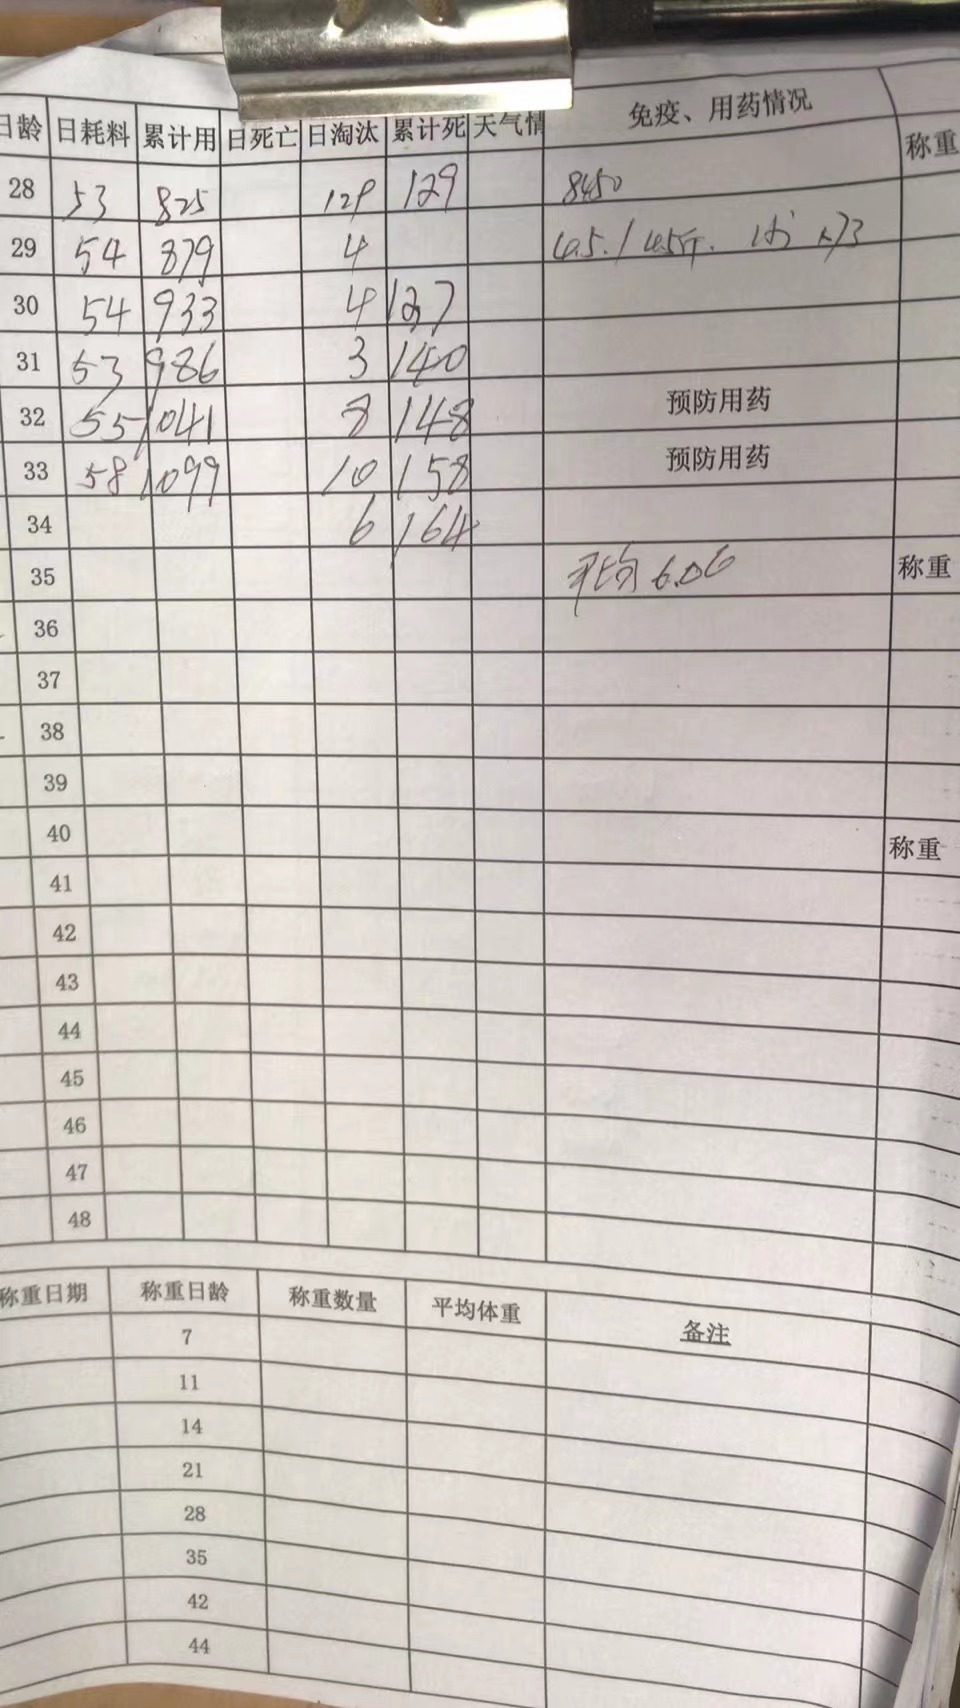 日龄 日耗料 累计用 日死亡 日淘汰 累计死 天气情 免疫、用药情况 称重
28 53 825 129 129 8450
29 54 879 4
30 54 933 4 137
31 53 986 3 140
32 55 1041 8 148 预防用药
33 58 1099 10 158 预防用药
34 6 164
35 平均 6.06 称重
36
37
38
39
40 称重
41
42
43
44
45
46
47
48
称重日期 称重日龄 称重数量 平均体重 备注
7
11
14
21
28
35
42
44